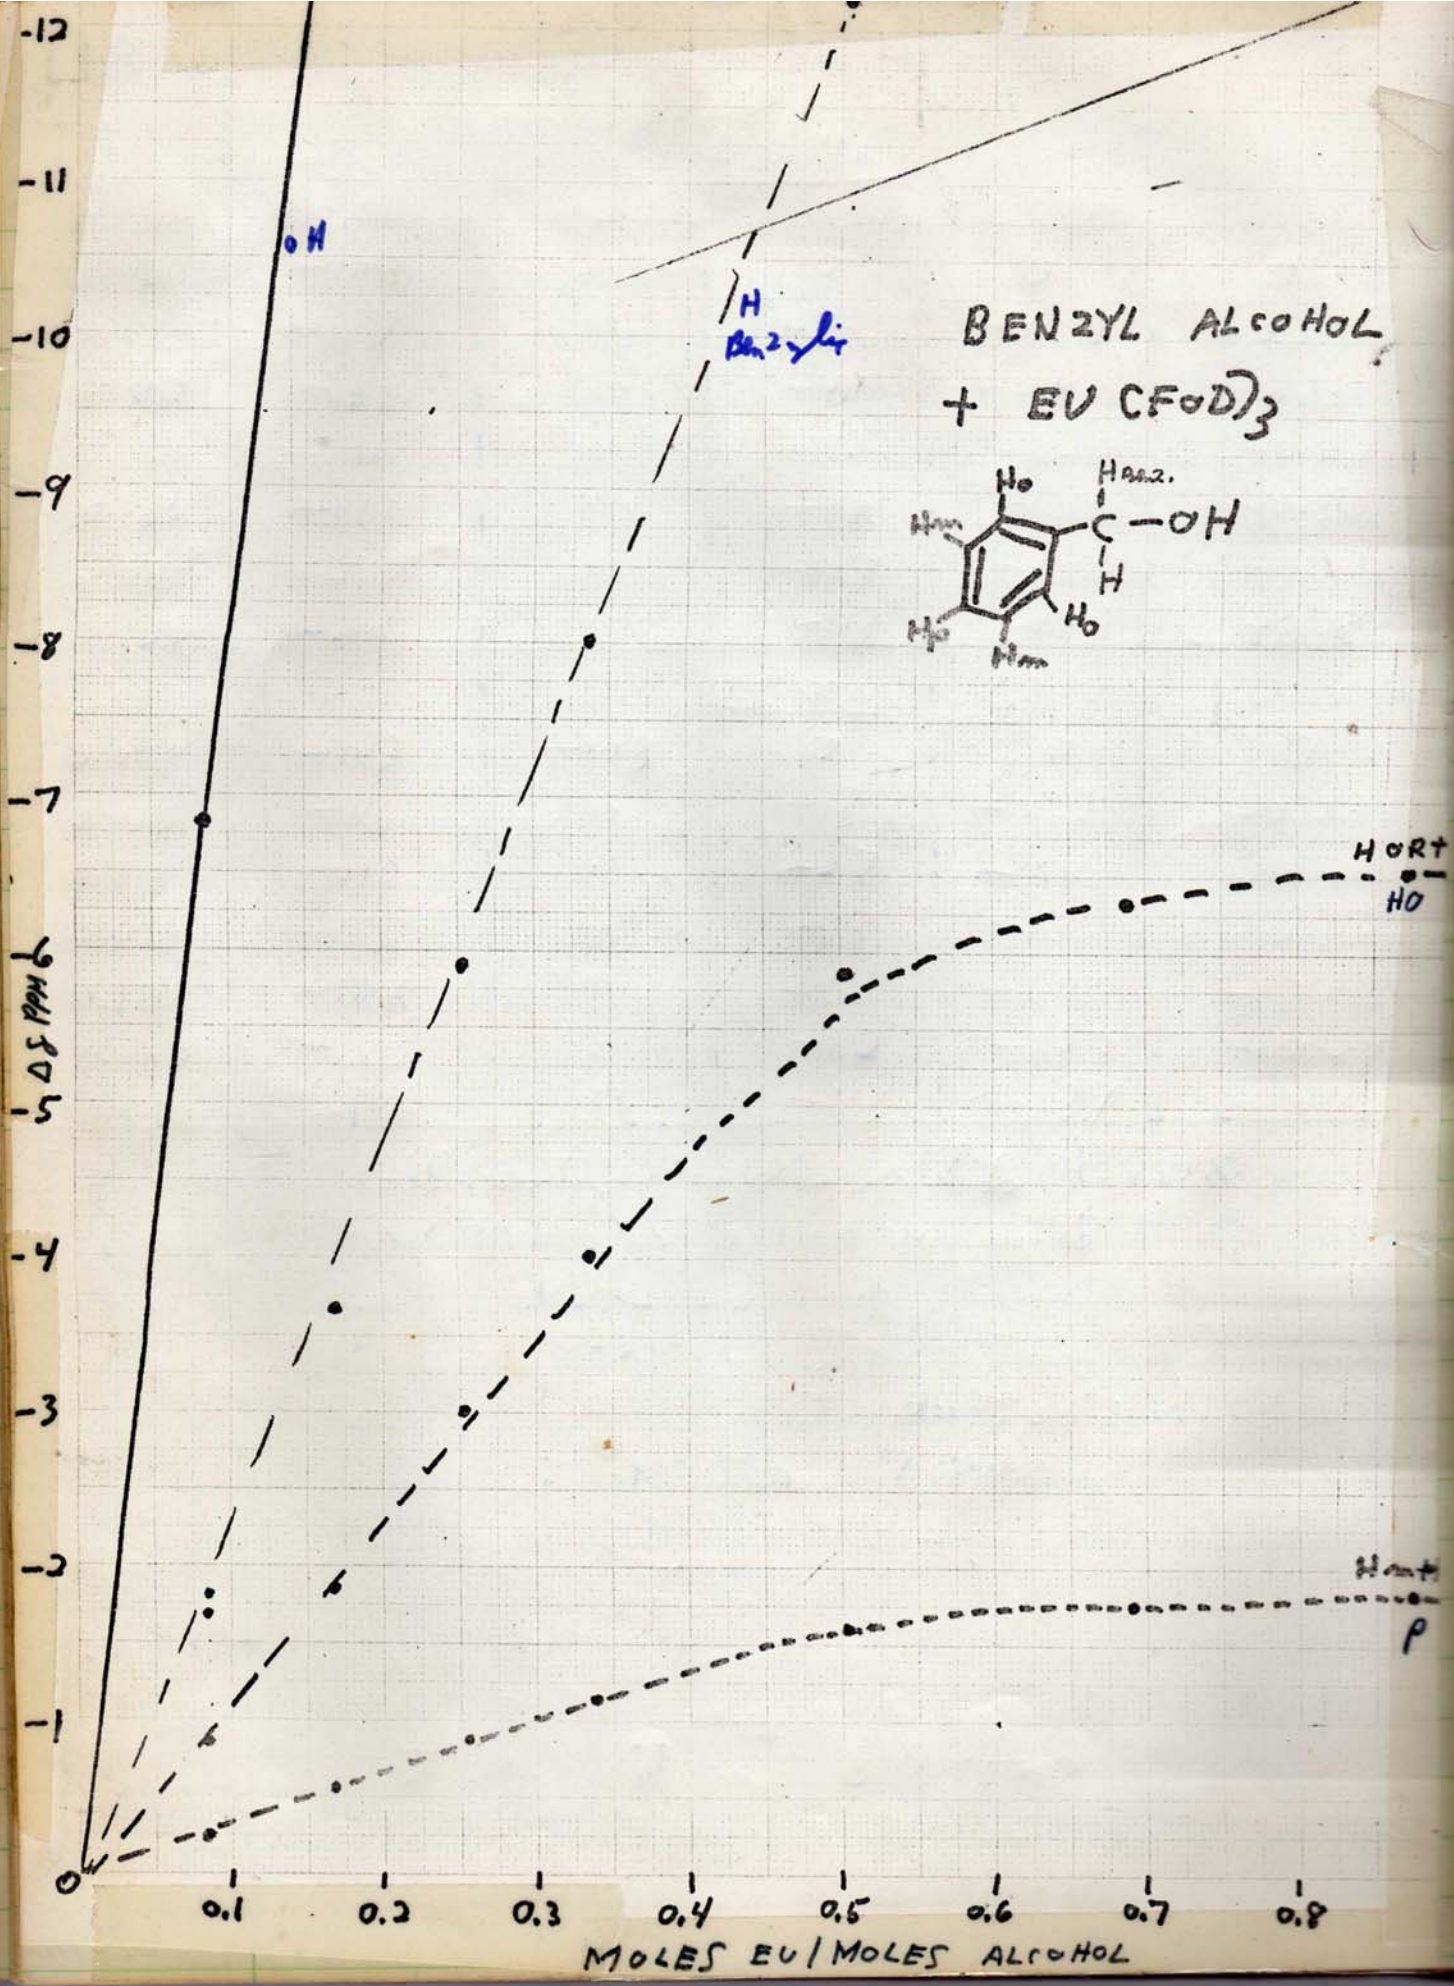 -12
-11
-10
-9
-8
-7
-6
-5
-4
-3
-2
-1
0
OH
H
Benzylic
BENZYL ALCOHOL
+ EU (FOD)3
Ho
H BENZ.
Hm
C-OH
H
Ho
Hp
Hm
H ORT
HO
Hm+H
P
0.1 0.2 0.3 0.4 0.5 0.6 0.7 0.8
MOLES EU/MOLES ALCOHOL